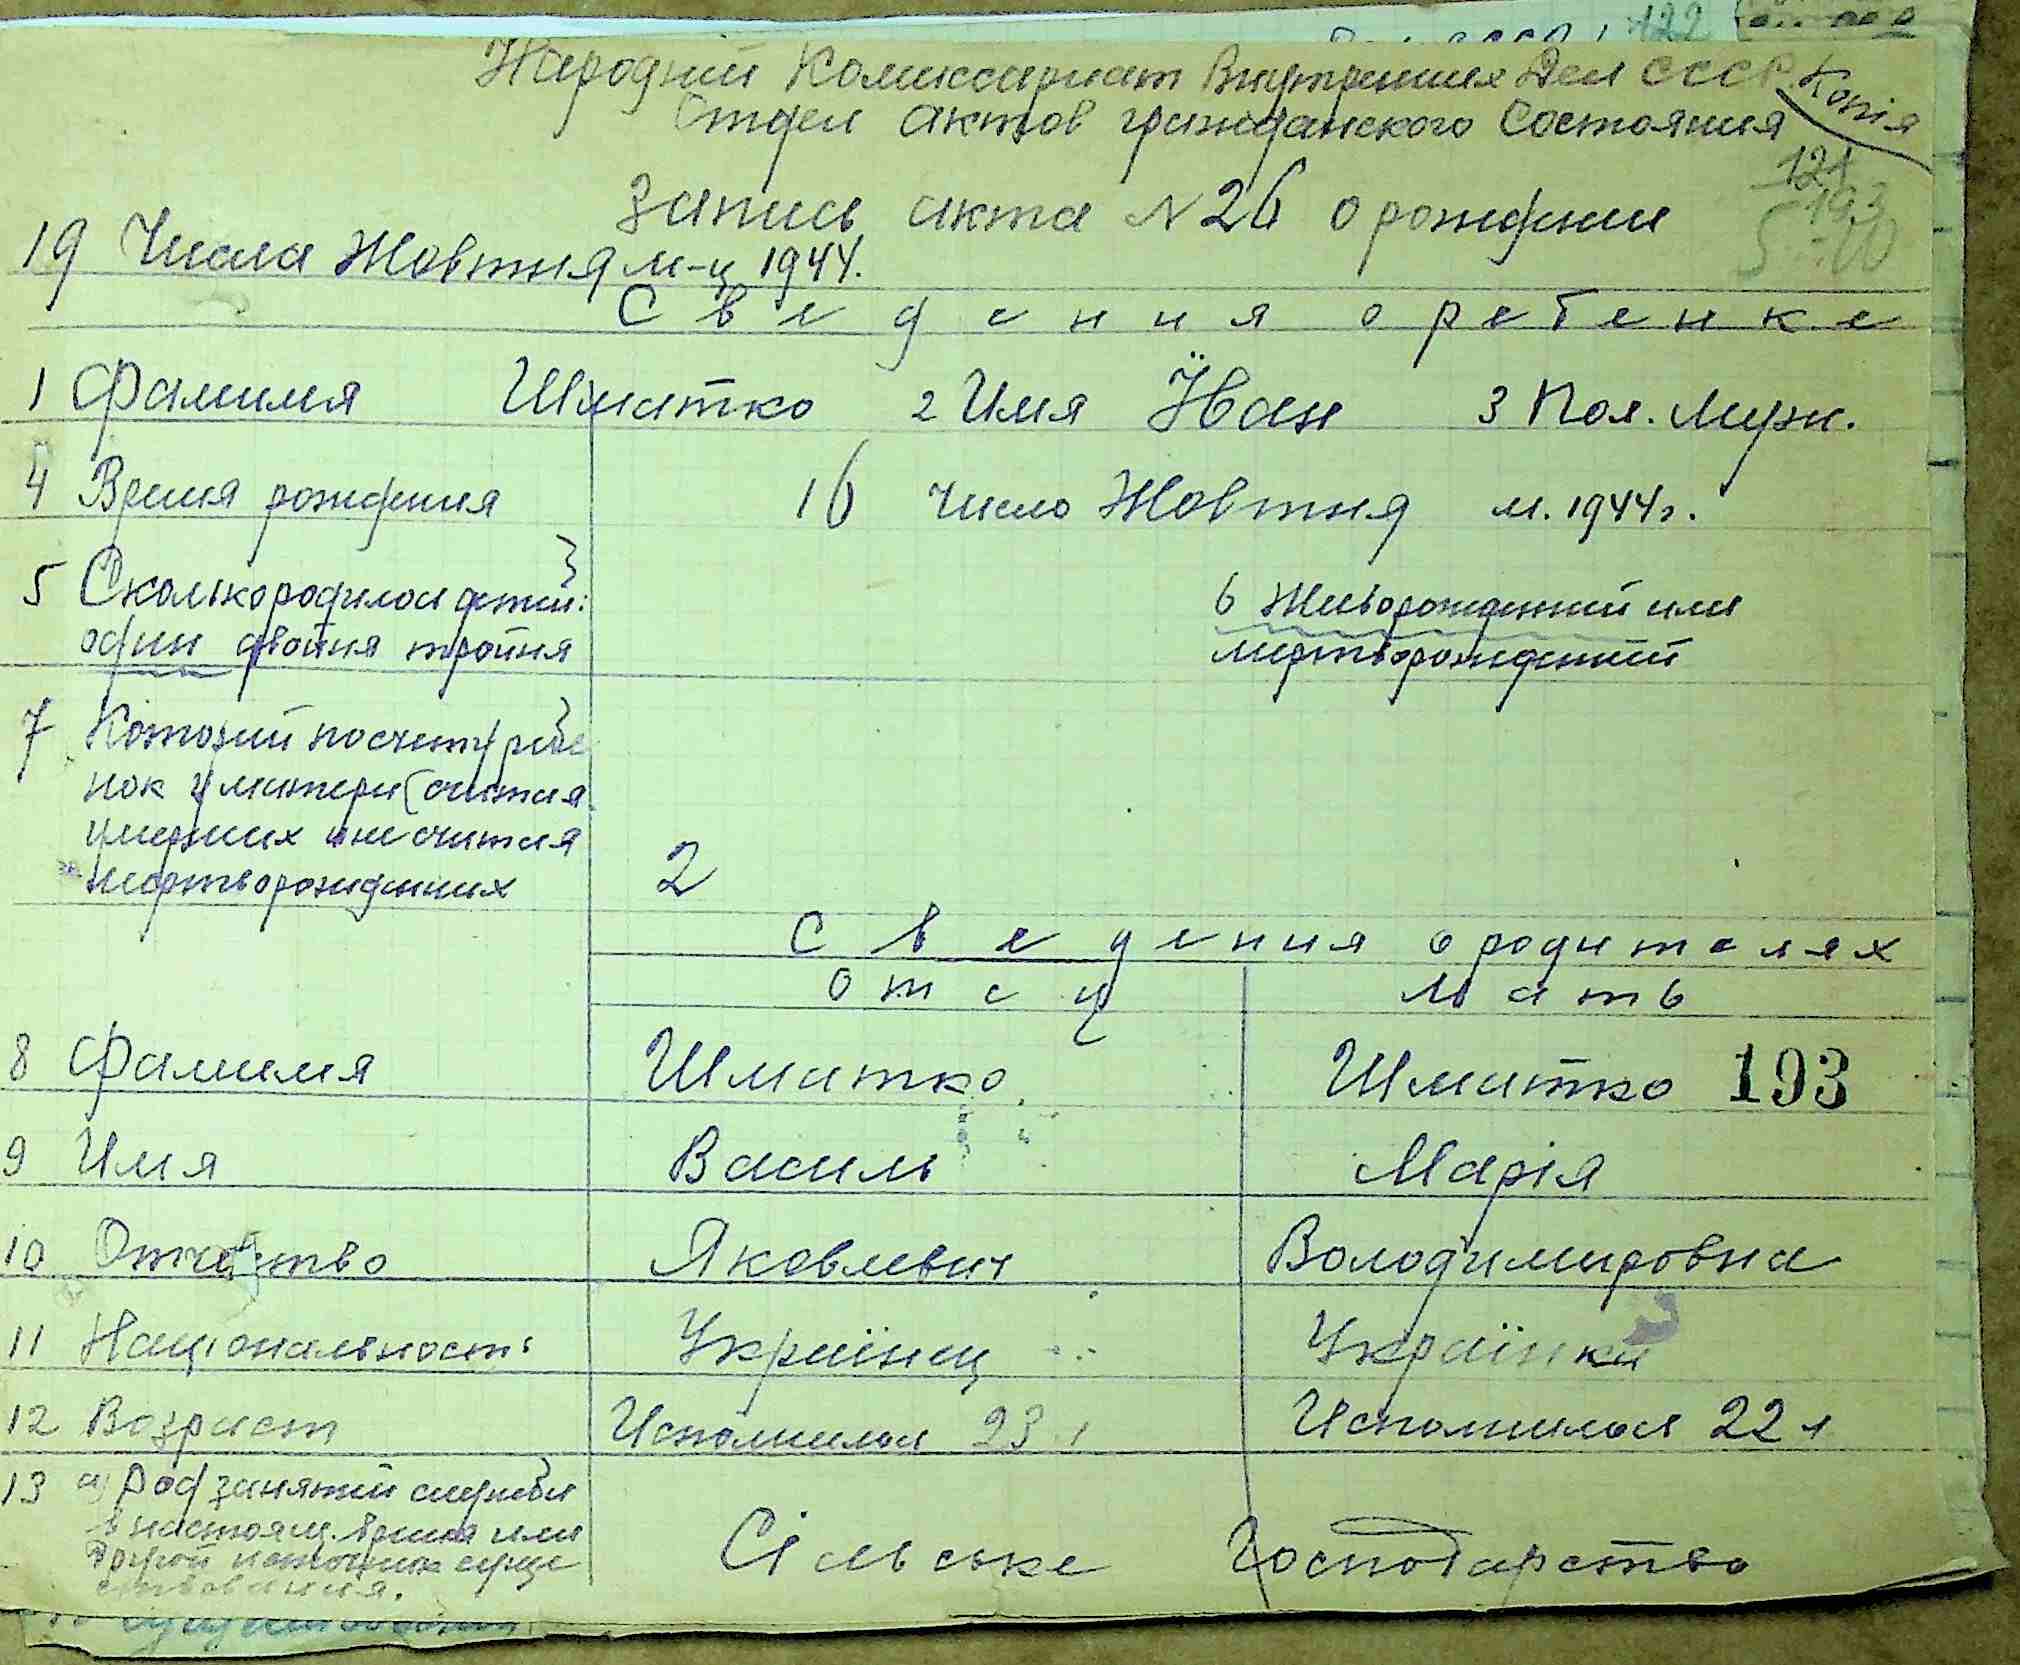 122
Народний Комиссариат Внутренних Дел СССР. Копія
Отдел актов гражданского состояния
121
193
Запись акта N 26 о рождении
19 Числа Жовтня м-ц 1944.
Сведения о ребенке
1 Фамилия Шматко 2 Имя Йван 3 Пол. Муж.
4 Время рождения 16 число Жовтня м. 1944 г.
5 Сколько родилось детей:
один двойня тройня
6 Живорожденний или
мертворожденний
7 Которий по счету ребе
нок у матери (считая
умерших и не считая
мертворожденних 2
Сведения о родителях
отец мать
8 Фамилия Шматко Шматко 193
9 Имя Василь Марія
10 Отчество Яковлевич Володимировна
11 Національность Українец Українка
12 Возраст Исполнилося 23 л Исполнилося 22 л
13 а) Род занятий служби
в настоящ. время или
другой источник суще
ствования. Сільське Господарство